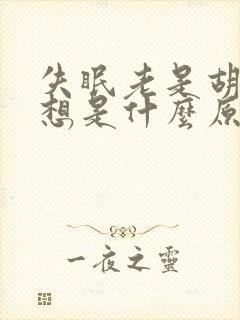 失眠老是胡
想是什麼原
一夜之靈